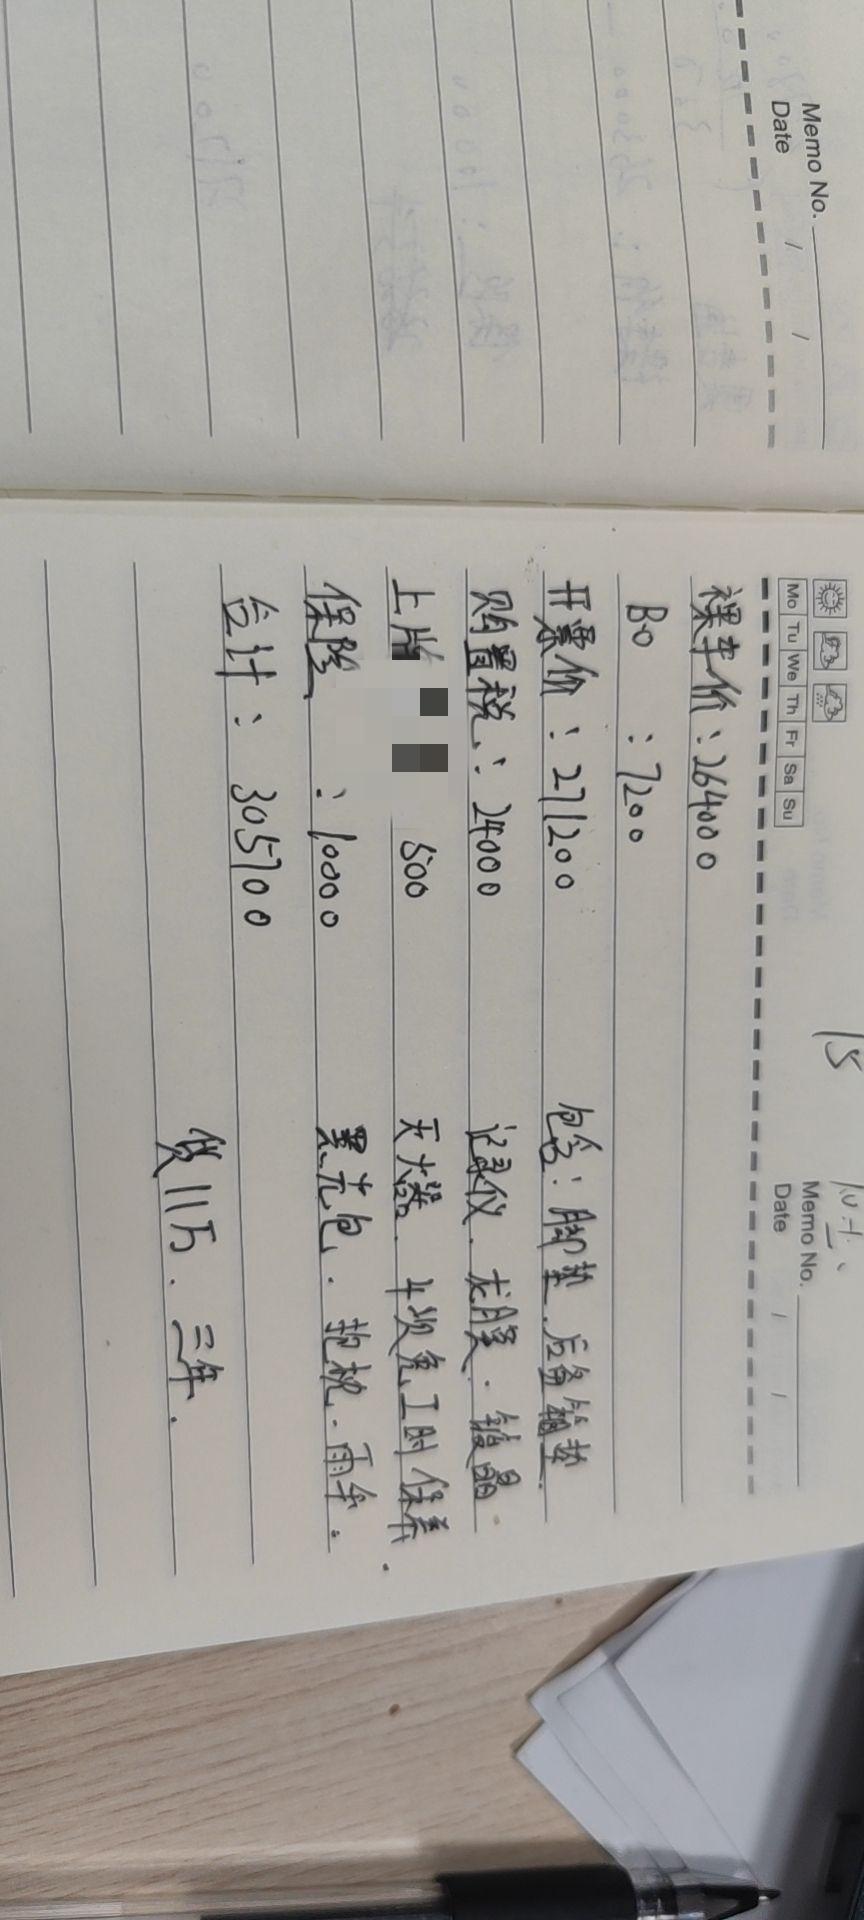 Memo No.
Date / /
Mo Tu We Th Fr Sa Su
15
Memo No.
Date / /
裸车价：264000
BO ：7200
开票价：271200 包含：脚垫.后备箱垫.
购置税：24000 记录仪.龙膜.镀晶.
上牌 500 灭火器.4次免工时保养.
保险 ：10000 黑.包.抱枕.雨伞.
合计：305700
贷11万.三年.